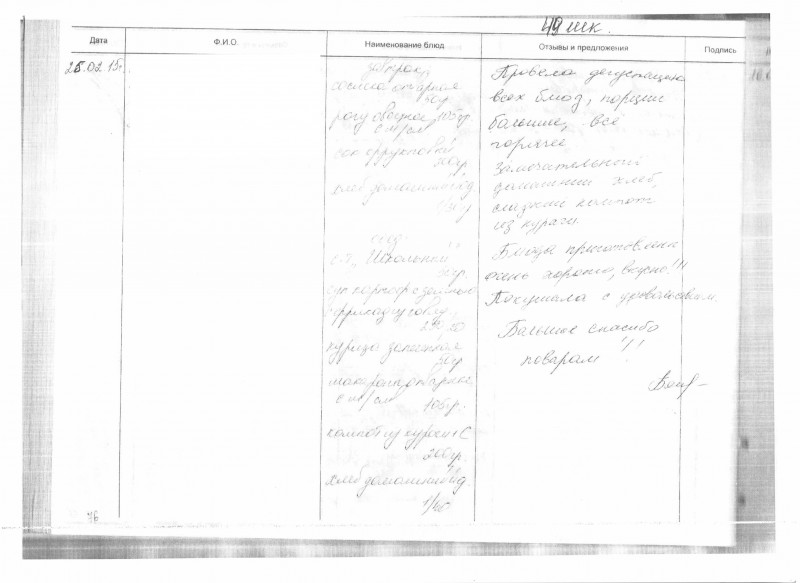 49 шк.
Дата Ф.И.О. Наименование блюд Отзывы и предложения Подпись
25.02.15г.
завтрак:
сосиска отварная
50гр
рагу овощное 105гр
с м/сл
сок фруктовый
200гр
хлеб домашний йод.
1/30гр
обед:
"Школьный"
суп картоф с домашн
фрикадельками
курица запеченая
50гр
макароны отварные
с м/сл
105гр.
компот из кураги + С
200гр.
хлеб домашний йод.
1/40
Провела дегустацию
всех блюд, порции
большие, все
горячее
Замечательный
домашний хлеб,
сладкий компот
из кураги.
Блюда приготовлены
очень хорошо, вкусно!!!
Покушала с удовольствием.
Большое спасибо
поварам!!!
76